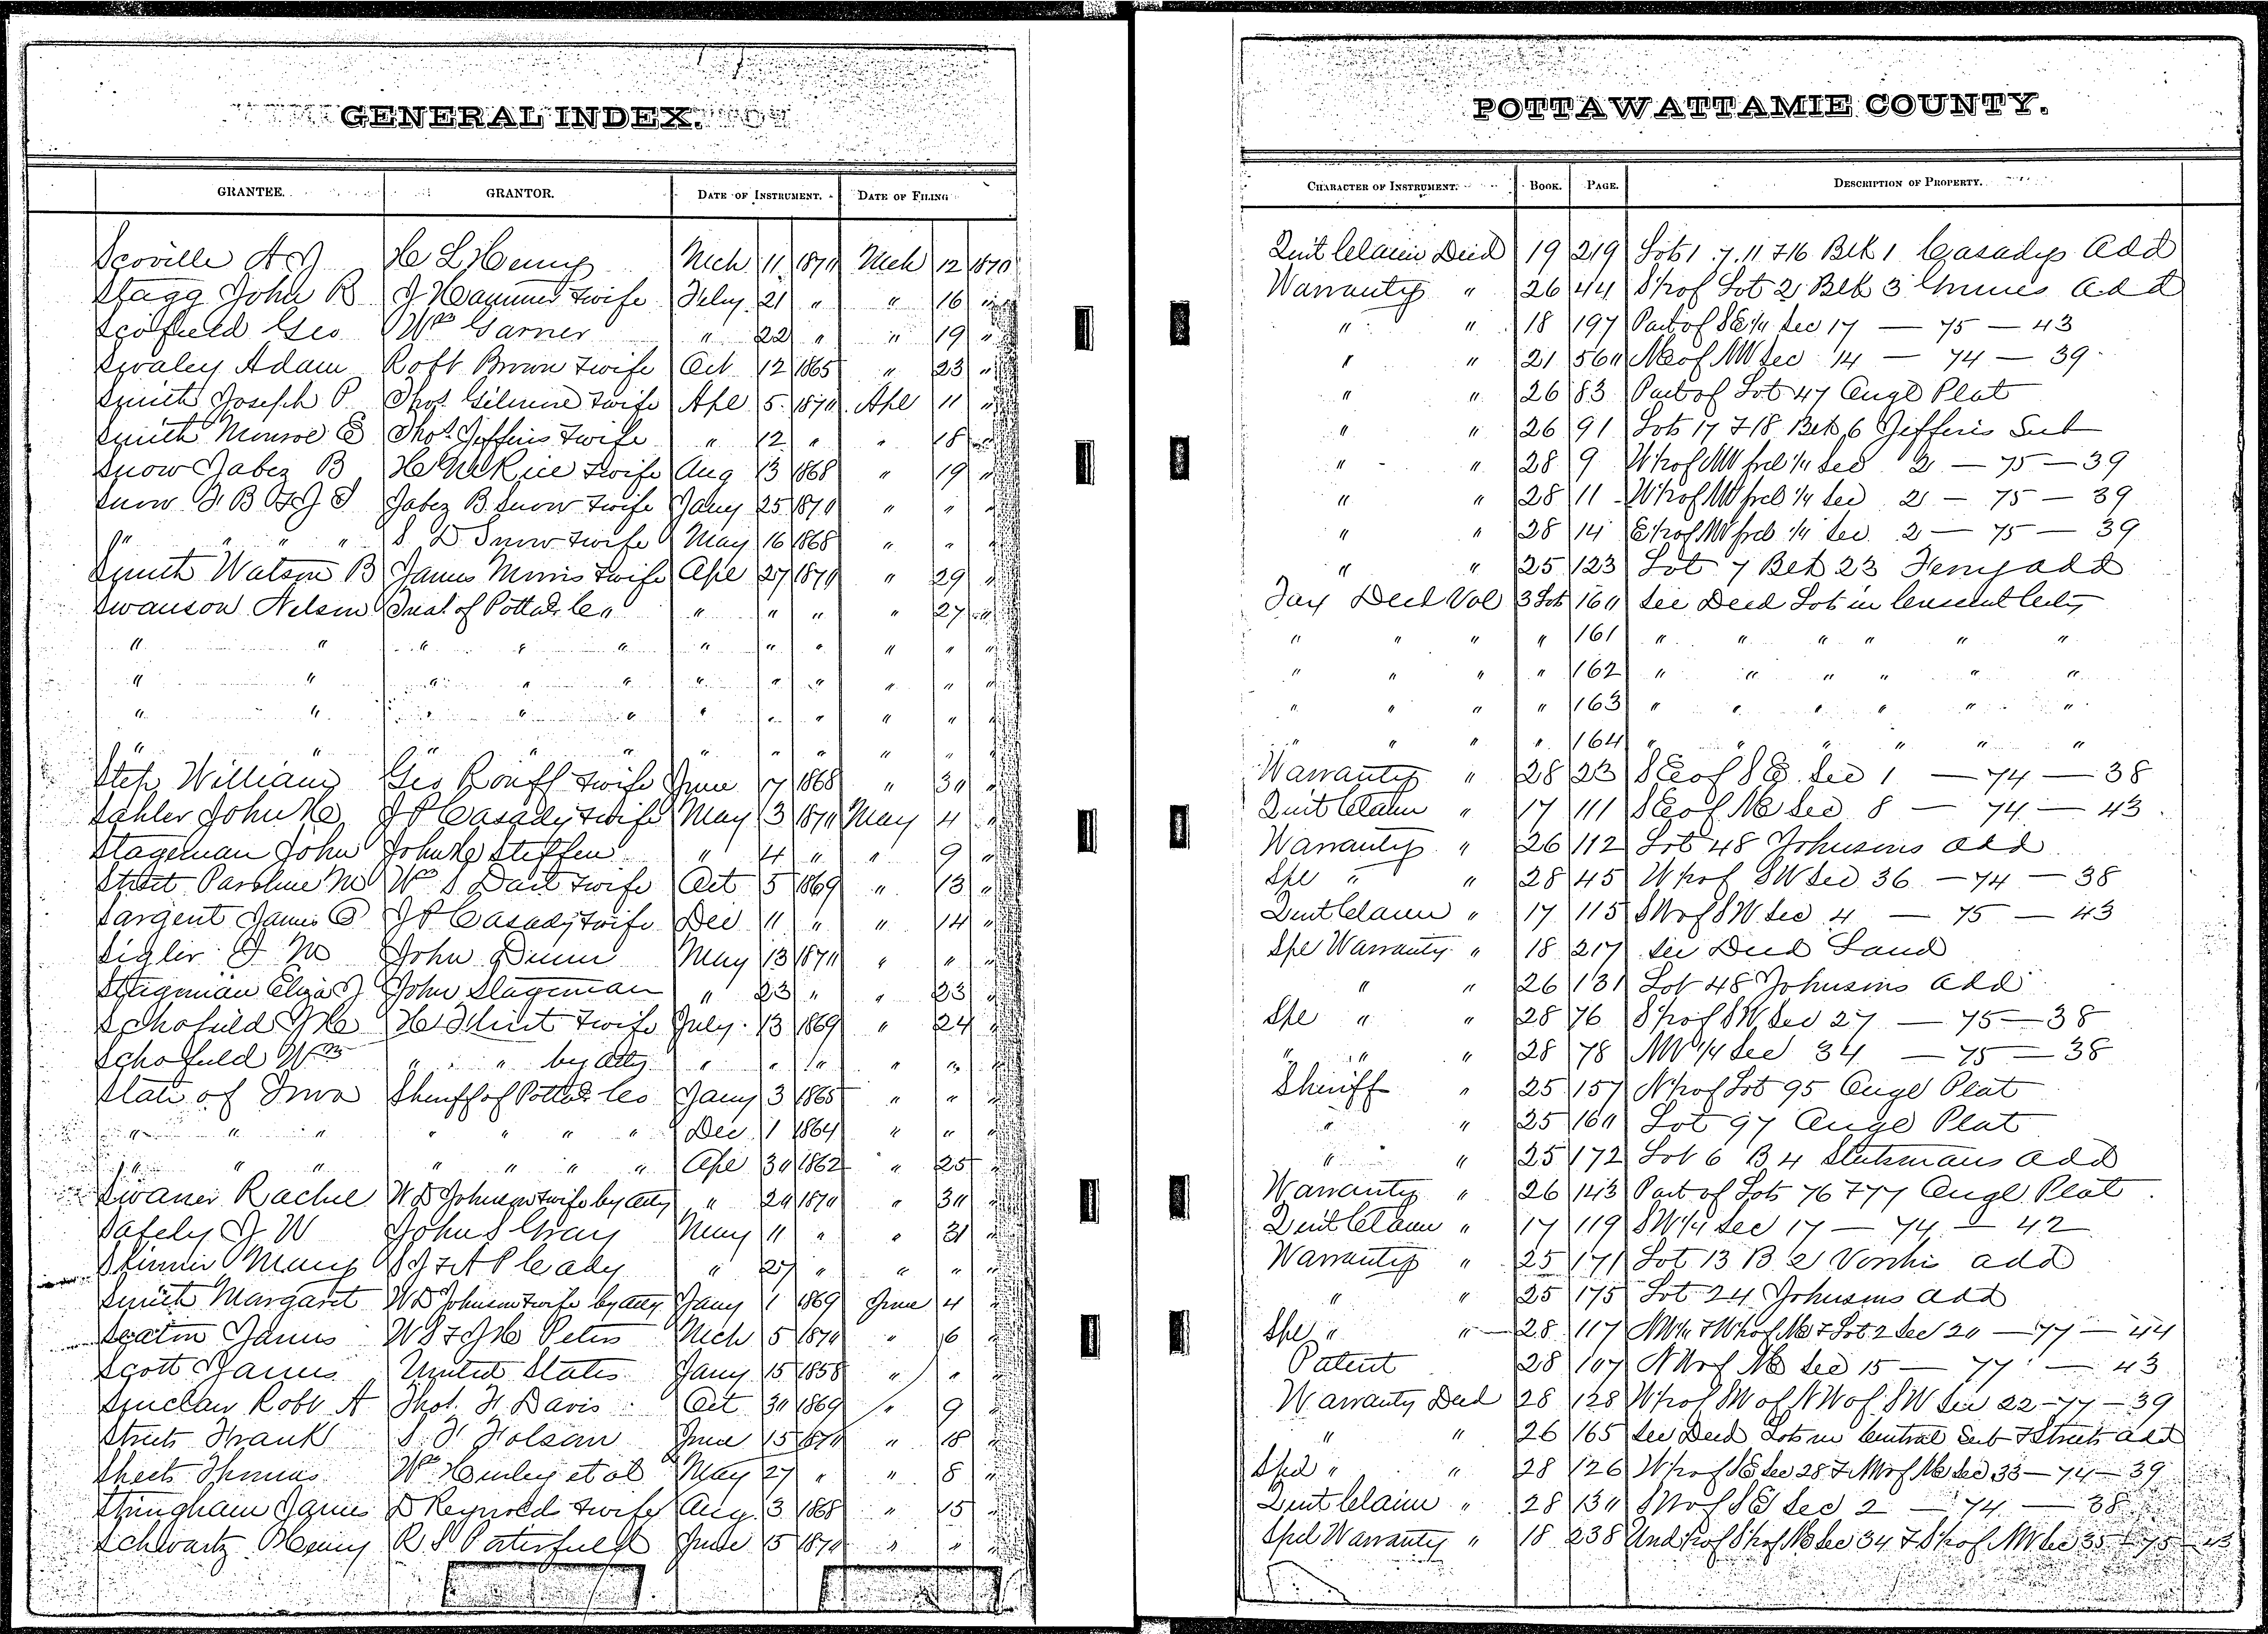 GENERAL INDEX.
GRANTEE. GRANTOR. DATE OF INSTRUMENT. DATE OF FILING
Scoville H L Mch 11 1870 Mch 12 1870
Stagg John B J Hammer & wife Feby 21 " " 16 "
Scofield Geo Wm Garner " 22 " " 19 "
Swaley Adam Robt Brown & wife Oct 12 1865 " 23 "
Smith Joseph P Thos. & wife Apl 5 1870 Apl 11 "
Smith Monroe E Thos. Jefferis & wife " 12 " " 18 "
Snow Jabez B Rice & wife Aug 13 1868 " 19 "
Snow Jabez B Snow & wife Jany 25 1870 " " "
" " " " S D Snow & wife May 16 1868 " " "
Smith Watson B James Morris & wife Apl 27 1870 " 29 "
Swanson Nelson Treas of Potta Co " " " " 27 "
" " " " " " " " " " "
" " " " " " " " " " "
" " " " " " " " " " "
" " " " " " " " " " "
William Geo & wife June 17 1868 " 30 "
Sahler John J P Casady & wife May 3 1870 May 4 "
Stageman John John Steffen " 4 " " 9 "
Wm S & wife Oct 5 1869 " 13 "
Sargent James J P Casady & wife Dec 11 " " 14 "
Sigler John Dunn May 13 1870 " " "
Stageman Eliza J John Stageman " 23 " " 23 "
Schofield & wife July 13 1869 " 24 "
Schofield Wm " " by Atty " " " " " "
State of Iowa Sheriff of Potta Co Jany 3 1865 " " "
" " " " " " " Dec 1 1864 " " "
" " " " " " " Apl 30 1862 " 25 "
Swaner Rachel W D Johnson & wife by Atty " 20 1870 " 30 "
Safely J W John S Gray May 11 " " 31 "
Skinner Mary Cady " 27 " " " "
Smith Margaret W D Johnson & wife by Atty Jany 1 1869 June 4 "
James Peters Mch 5 1870 " 6 "
Scott James United States Jany 15 1858 " " "
Sinclair Robt A Thos. H Davis Oct 30 1869 " 9 "
Streets Frank S F Folsom June 15 1870 " 18 "
Sheets Thomas Wm Hurley et al May 27 " " 8 "
Stringham James D Reynolds & wife Aug 3 1868 " 15 "
Schwartz Henry R S Porterfield June 15 1870 " " "
POTTAWATTAMIE COUNTY.
CHARACTER OF INSTRUMENT. BOOK. PAGE. DESCRIPTION OF PROPERTY.
Quit Claim Deed 19 219 Lots 1. 7. 11 & 16 Blk 1 Casadys Add
Warranty " 26 44 S hf of Lot 2 Blk 3 Grimes Add
" " 18 197 Part of SE 1/4 Sec 17 — 75 — 43
" " 21 560 NE of NW Sec 14 — 74 — 39
" " 26 83 Part of Lot 47 Augl Plat
" " 26 91 Lots 17 & 18 Blk 6 Jefferis Sub
" " 28 9 W hf of NW frcl 1/4 Sec 2 — 75 — 39
" " 28 11 W hf of NW frcl 1/4 Sec 2 — 75 — 39
" " 28 14 E hf of NW frcl 1/4 Sec 2 — 75 — 39
" " 25 123 Lot 7 Blk 23 Ferry add
Tax Deed Vol 3 Lots 160 See Deed Lots in Crescent City
" " " " 161 " " " " " "
" " " " 162 " " " " " "
" " " " 163 " " " " " "
" " " " 164 " " " " " "
Warranty " 28 23 SE of SE Sec 1 — 74 — 38
Quit Claim " 17 111 SE of NE Sec 8 — 74 — 43
Warranty " 26 112 Lot 48 Johnsons Add
Spe " " 28 45 W hf of SW Sec 36 — 74 — 38
Quit Claim " 17 115 SW of SW Sec 4 — 75 — 43
Spe Warranty " 18 217 See Deed Land
" " 26 131 Lot 48 Johnsons Add
Spe " " 28 76 S hf of SW Sec 27 — 75 — 38
" " " 28 78 NW 1/4 Sec 34 — 75 — 38
Sheriff " 25 157 N hf of Lot 95 Augl Plat
" " 25 160 Lot 97 Augl Plat
" " 25 172 Lot 6 B 4 Stutsmans Add
Warranty " 26 143 Part of Lots 76 & 77 Augl Plat
Quit Claim " 17 119 SW 1/4 Sec 17 — 74 — 42
Warranty " 25 171 Lot 13 B 2 add
" " 25 175 Lot 24 Johnsons Add
Spe " " 28 117 NW 1/4 & W hf of NE & Lot 2 Sec 20 — 77 — 44
Patent 28 107 NW of NE Sec 15 — 77 — 43
Warranty Deed 28 128 W hf of SW of NW of SW Sec 22 — 77 — 39
" " 26 165 See Deed Lots in Central Sub & Streets Add
Spcl " " 28 126 W hf of SE Sec 28 & NW of NE Sec 33 — 74 — 39
Quit Claim " 28 130 SW of SE Sec 2 — 74 — 38
Spcl Warranty " 18 238 Und hf of S hf of NE Sec 34 & S hf of NW Sec 35 — 75 — 43